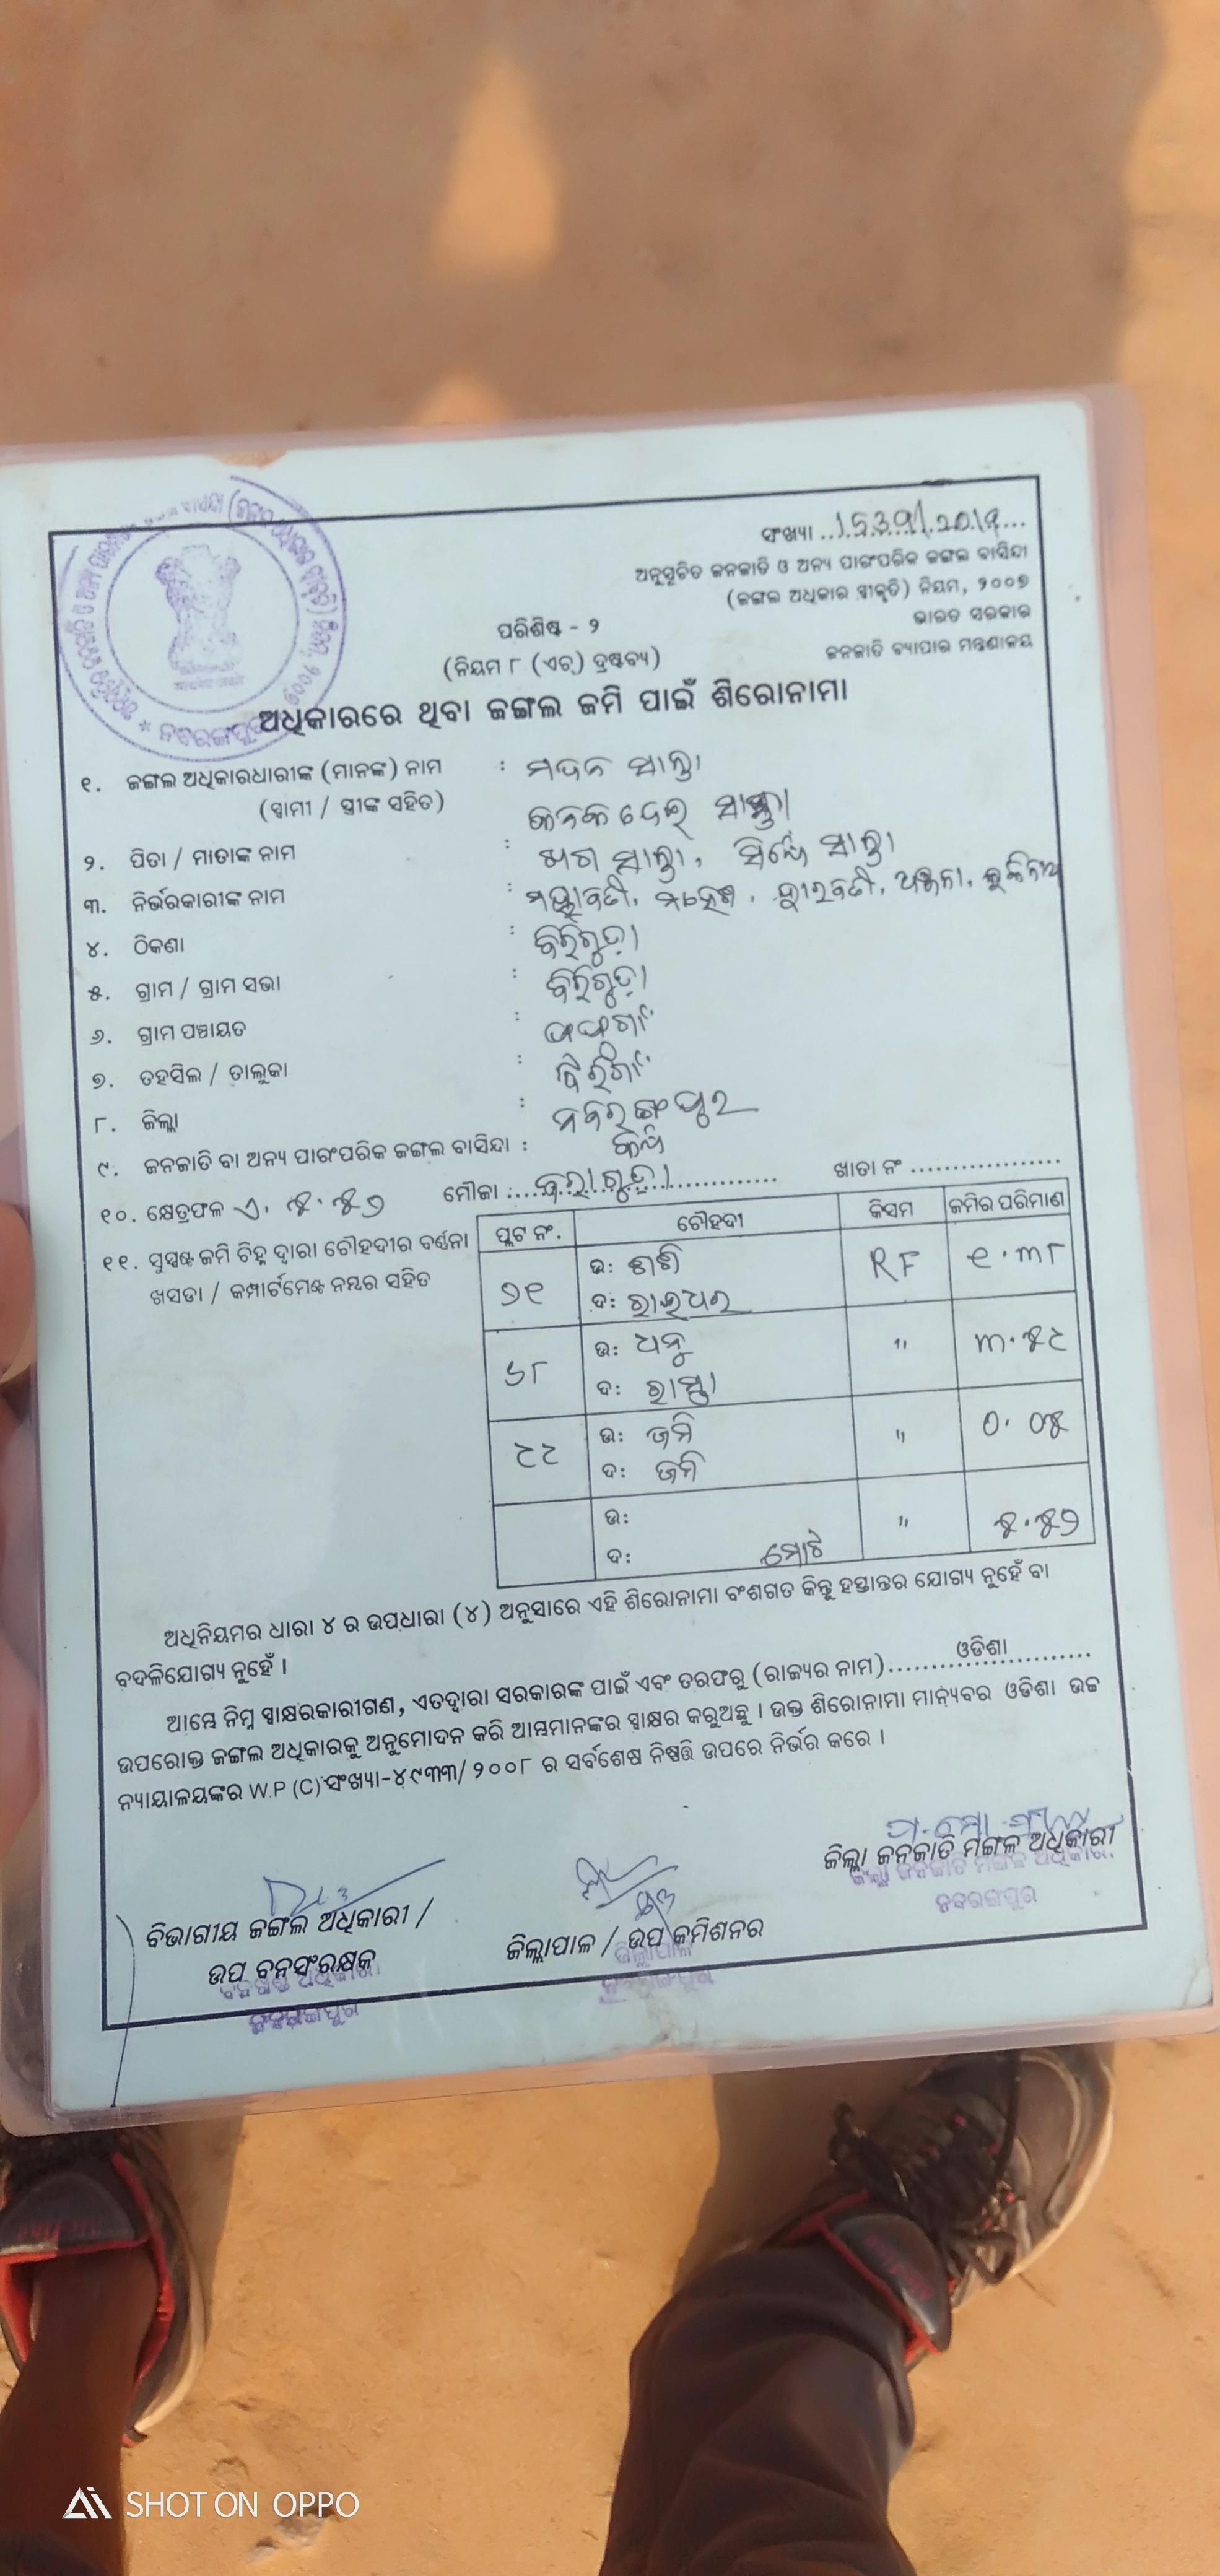 ସଂଖ୍ୟା
ଅନୁସୂଚିତ ଜନଜାତି ଓ ଅନ୍ୟ ପାରଂପରିକ ଜଙ୍ଗଲ ବାସିନ୍ଦା
(ଜଙ୍ଗଲ ଅଧିକାର ସ୍ୱୀକୃତି) ନିୟମ, ୨୦୦୭
ଭାରତ ସରକାର
ଜନଜାତି ବ୍ୟାପାର ମନ୍ତ୍ରଣାଳୟ
ପରିଶିଷ୍ଟ - ୨
(ନିୟମ ୮ (ଏଚ୍) ଦ୍ରଷ୍ଟବ୍ୟ)
ଅଧିକାରରେ ଥିବା ଜଙ୍ଗଲ ଜମି ପାଇଁ ଶିରୋନାମା
୧. ଜଙ୍ଗଲ ଅଧିକାରଧାରୀଙ୍କ (ମାନଙ୍କ) ନାମ : ମଦନ ସାନ୍ତା
(ସ୍ୱାମୀ / ସ୍ତ୍ରୀଙ୍କ ସହିତ) କନକ ଦେଇ ସାନ୍ତା
୨. ପିତା / ମାତାଙ୍କ ନାମ : ସାନ୍ତା, ସାନ୍ତା
୩. ନିର୍ଭରକାରୀଙ୍କ ନାମ :
୪. ଠିକଣା : ବିରିଗୁଡ଼ା
୫. ଗ୍ରାମ / ଗ୍ରାମ ସଭା : ବିରିଗୁଡ଼ା
୬. ଗ୍ରାମ ପଞ୍ଚାୟତ :
୭. ତହସିଲ / ତାଲୁକା :
୮. ଜିଲ୍ଲା : ନବରଙ୍ଗପୁର
୯. ଜନଜାତି ବା ଅନ୍ୟ ପାରଂପରିକ ଜଙ୍ଗଲ ବାସିନ୍ଦା :
୧୦. କ୍ଷେତ୍ରଫଳ ଏ. ୫.୫୭ ମୌଜା : ଖାତା ନଂ
୧୧. ସୁସ୍ପଷ୍ଟ ଜମି ଚିହ୍ନ ଦ୍ୱାରା ଚୌହଦୀର ବର୍ଣ୍ଣନା
ଖସଡା / କମ୍ପାର୍ଟମେଣ୍ଟ ନମ୍ବର ସହିତ
ପ୍ଲଟ ନଂ. ଚୌହଦୀ କିସମ ଜମିର ପରିମାଣ
୭୧ ଉ: RF ୧.୩୮
ଦ: ରାଇଧର
୬୮ ଉ: ଧନୁ " ୩.୫୯
ଦ: ରାସ୍ତା
ଉ: ଜମି " ୦.୦୫
ଦ: ଜମି
ଉ: " ୫.୫୭
ଦ: ମୋଟ
ଅଧିନିୟମର ଧାରା ୪ ର ଉପଧାରା (୪) ଅନୁସାରେ ଏହି ଶିରୋନାମା ବଂଶଗତ କିନ୍ତୁ ହସ୍ତାନ୍ତର ଯୋଗ୍ୟ ନୁହେଁ ବା
ବଦଳିଯୋଗ୍ୟ ନୁହେଁ ।
ଆମ୍ଭେ ନିମ୍ନ ସ୍ୱାକ୍ଷରକାରୀଗଣ, ଏତଦ୍ୱାରା ସରକାରଙ୍କ ପାଇଁ ଏବଂ ତରଫରୁ (ରାଜ୍ୟର ନାମ) ଓଡିଶା
ଉପରୋକ୍ତ ଜଙ୍ଗଲ ଅଧିକାରକୁ ଅନୁମୋଦନ କରି ଆମ୍ଭମାନଙ୍କର ସ୍ୱାକ୍ଷର କରୁଅଛୁ । ଉକ୍ତ ଶିରୋନାମା ମାନ୍ୟବର ଓଡିଶା ଉଚ୍ଚ
ନ୍ୟାୟାଳୟଙ୍କର W.P (C) ସଂଖ୍ୟା-୪୯୩୩/୨୦୦୮ ର ସର୍ବଶେଷ ନିଷ୍ପତ୍ତି ଉପରେ ନିର୍ଭର କରେ ।
ବିଭାଗୀୟ ଜଙ୍ଗଲ ଅଧିକାରୀ /
ଉପ ବନସଂରକ୍ଷକ
ଜିଲ୍ଲାପାଳ / ଉପ କମିଶନର
ଜିଲ୍ଲାପାଳ
ନବରଙ୍ଗପୁର
ଜିଲ୍ଲା ଜନଜାତି ମଙ୍ଗଳ ଅଧିକାରୀ
ଜିଲ୍ଲା ଜନଜାତି ମଙ୍ଗଳ ଅଧିକାରୀ
ନବରଙ୍ଗପୁର
SHOT ON OPPO